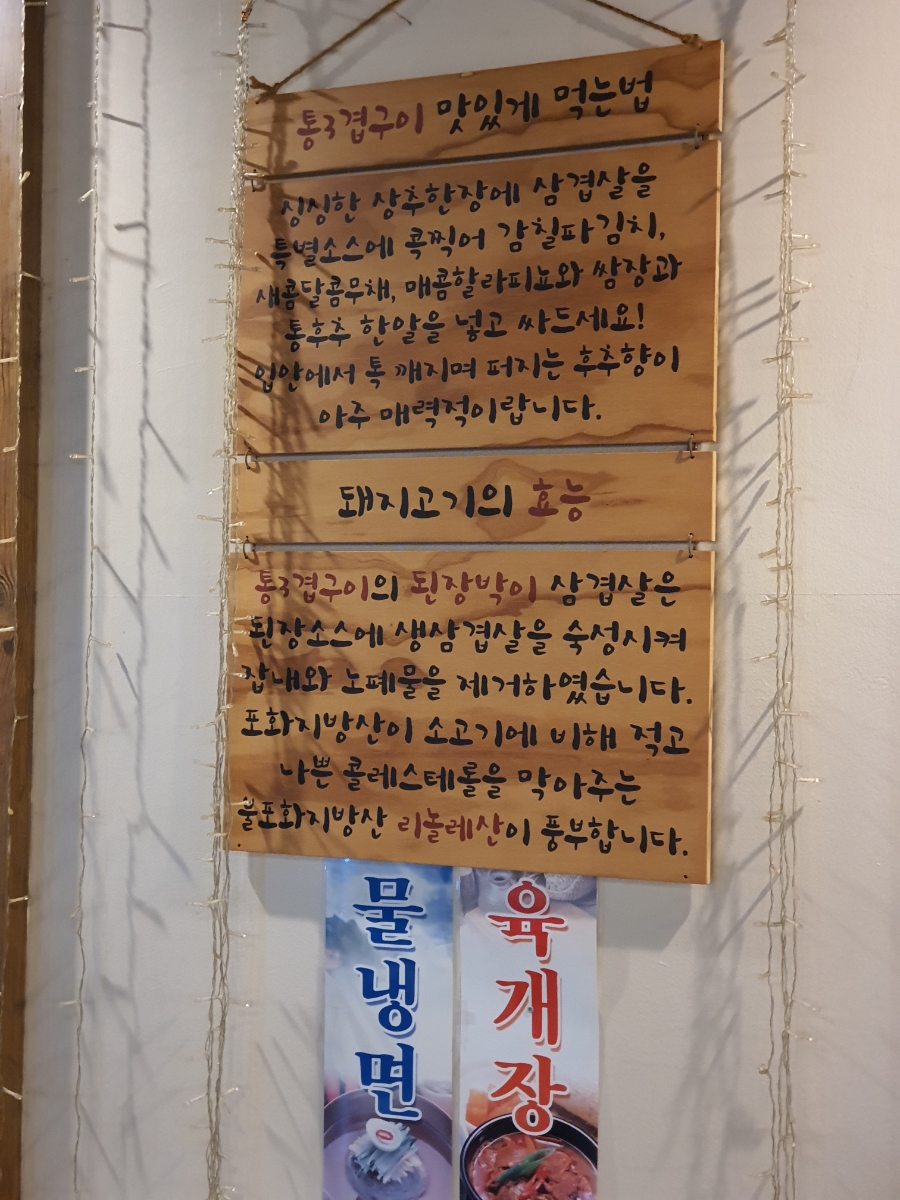 통3겹구이 맛있게 먹는법
싱싱한 상추한장에 삼겹살을
특별소스에 콕찍어 감칠파김치,
새콤달콤무채, 매콤할라피뇨와 쌈장과
통후추 한알을 넣고 싸드세요!
입안에서 톡 깨지며 퍼지는 후추향이
아주 매력적이랍니다.
돼지고기의 효능
통3겹구이의 된장박이 삼겹살은
된장소스에 생삼겹살을 숙성시켜
잡내와 노폐물을 제거하였습니다.
포화지방산이 소고기에 비해 적고
나쁜 콜레스테롤을 막아주는
불포화지방산 리놀레산이 풍부합니다.
물냉면
육개장